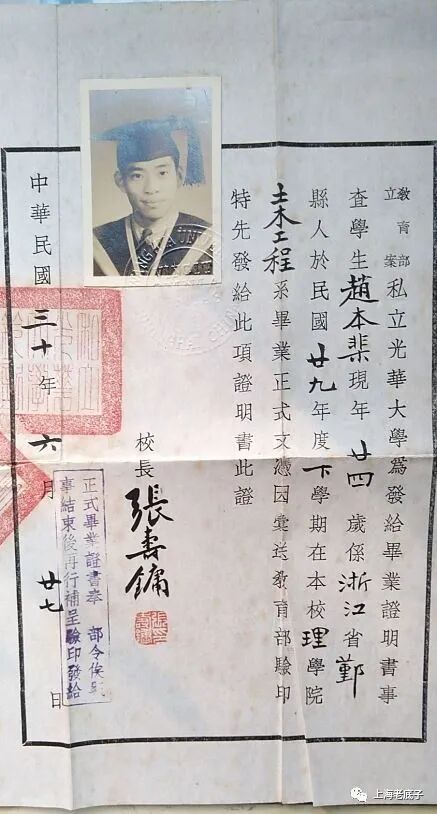 教育部立案私立光華大學爲發給畢業證明書事
查學生趙本棐現年廿四歲係浙江省鄞
縣人於民國廿九年度下學期在本校理學院
土木工程系畢業正式文憑因彙送教育部驗印
特先發給此項證明書此證
校長張壽鏞
中華民國三十年六月廿七日
正式畢業證書奉部令俟戰
事結束後再行補呈驗印發給
上海老底子